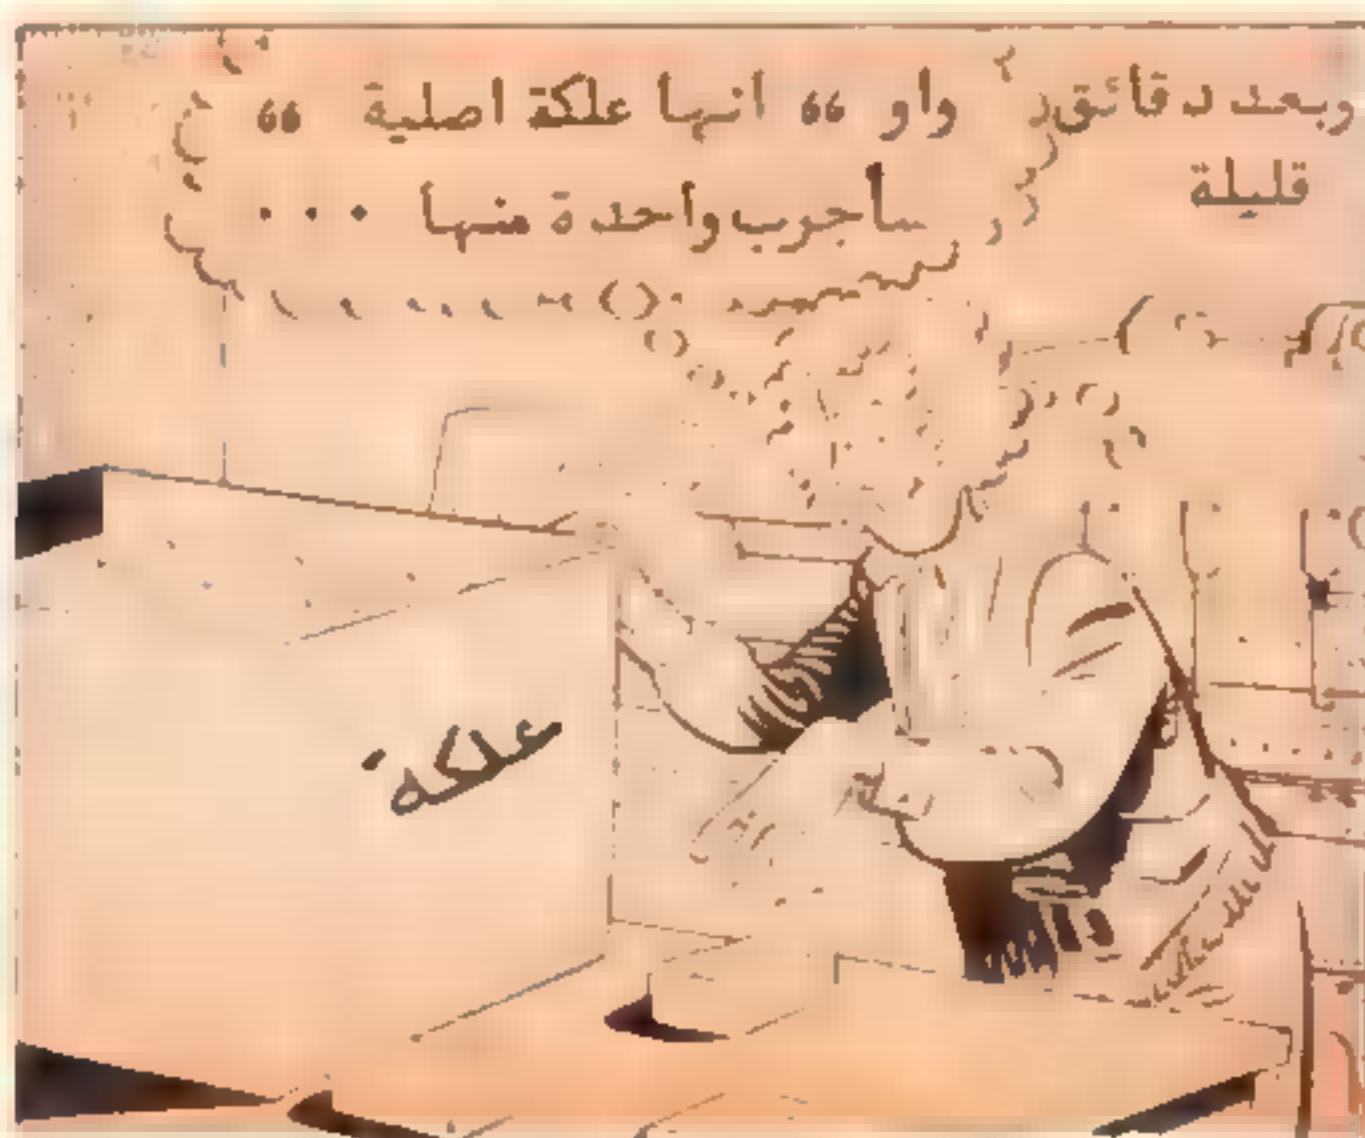 وبعد دقائق
قليلة
واو ،، انها علكة اصلية ،،
سأجرب واحدة منها ...
علكة